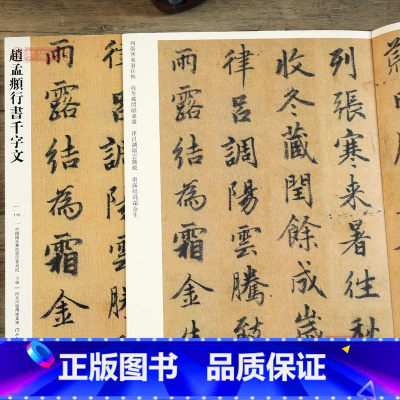 列張寒来暑往秋
收冬藏閏餘成歲
律呂調陽雲騰致
雨露結為霜金生
列張寒來暑往秋 收冬藏閏餘成歲 律呂調陽雲騰致 雨露結為霜金生
雨露結為霜金
趙孟頫行書千字文